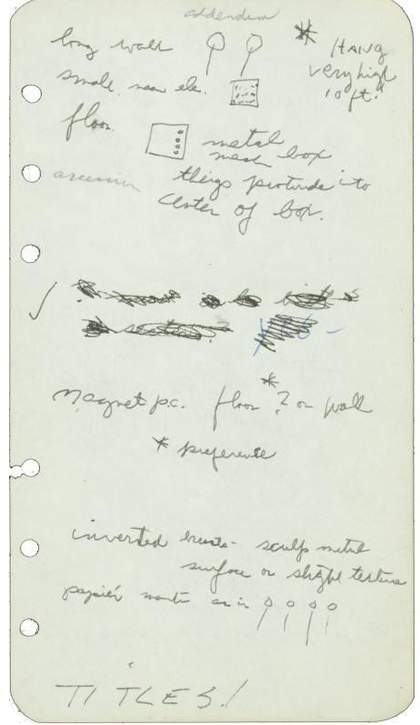 addendum
long wall
* HANG
very high
10 ft.
small, near ele.
floor
metal
mesh box
things protrude into
center of box.
Magnet pc. floor *? or wall
* preference
inverted breasts - sculp metal
surface or slight texture
papier as in
TITLES!